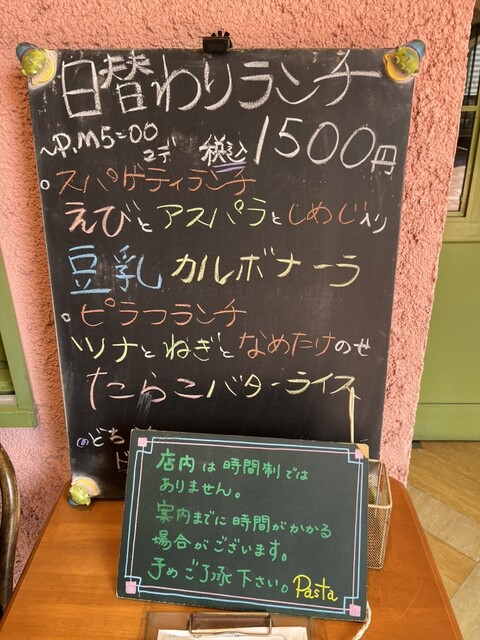 日替わりランチ
〜P.M5=00マデ 税込 1500円
○スパゲティランチ
えびとアスパラとしめじ入り
豆乳カルボナーラ
○ピラフランチ
ツナとねぎとなめたけのせ
たらこバターライス
どち
店内は時間制では
ありません。
案内までに時間がかかる
場合がございます。
予めご了承下さい。Pasta